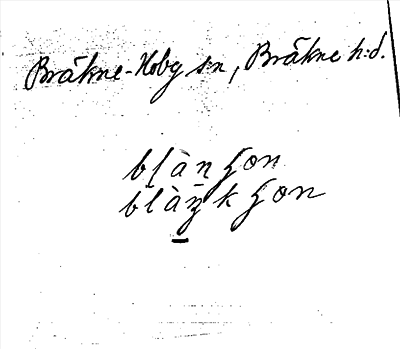 Bräkne-Hoby sn, Bräkne h:d.
blàn ʒon
blàŋk ʒon